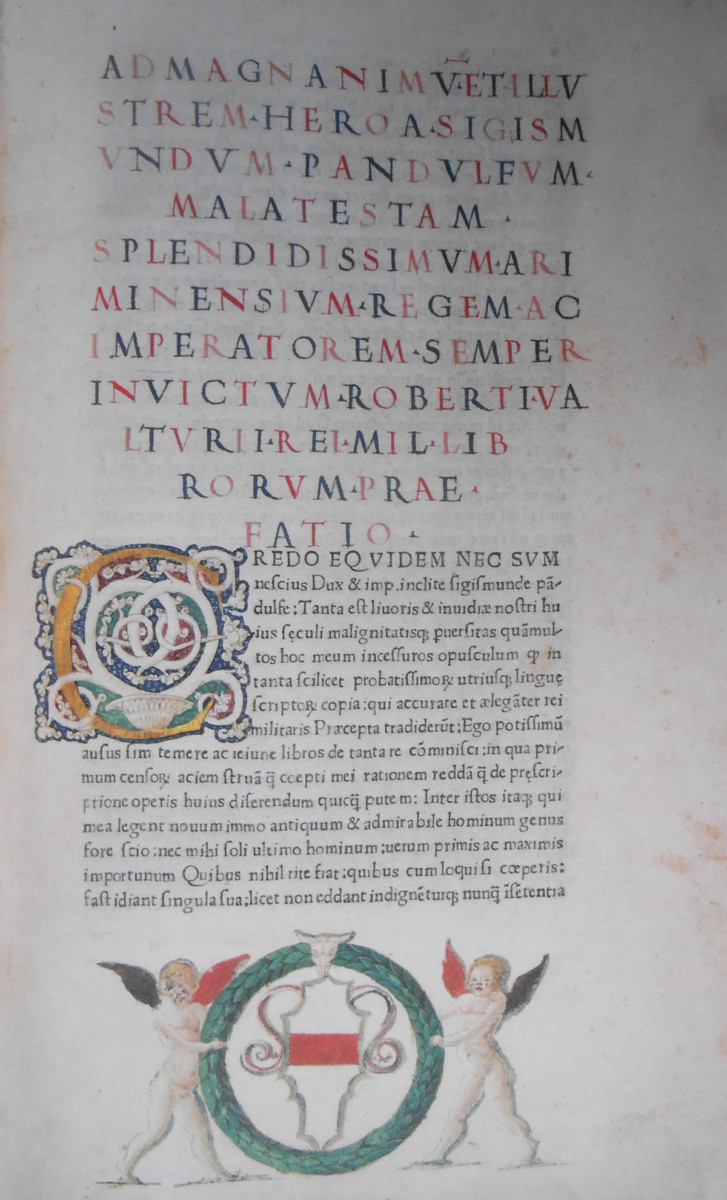 AD MAGNANIMV̄·ET·ILLV
STREM·HEROA·SIGISM
VNDVM·PANDVLFVM·
MALATESTAM·
SPLENDIDISSIMVM·ARI
MINENSIVM·REGEM·AC
IMPERATOREM·SEMPER
INVICTVM·ROBERTI·VA
LTVRII·REI·MIL·LIB
RORVM·PRAE·
FATIO·
CREDO EQVIDEM NEC SVM
neſcius Dux & imp.inclite ſigiſmunde pā-
dulfe:Tanta eſt liuoris & inuidiæ noſtri hu
ius ſęculi malignitatisq; ꝑuerſitas quāmul-
tos hoc meum inceſſuros opuſculum ꝙ in
tanta ſcilicet probatiſſimoꝝ utriuſq; linguę
ſcriptoꝝ copia:qui accurate et ælegāter rei
militaris Præcepta tradiderūt;Ego potiſſimū
auſus ſim temere ac ieiune libros de tanta re cōminiſci:in qua pri-
mum cenſoꝝ aciem ſtruā q̄ ccepti mei rationem reddā q̄ de pręſcri-
ptione operis huius diſerendum quicq̄ putem: Inter iſtos itaq; qui
mea legent nouum immo antiquum & admirabile hominum genus
fore ſcio:nec mihi ſoli ultimo hominum;uerum primis ac maximis
importunum Quibus nihil rite fiat;quibus cum loqui ſi cœperis:
faſtidiant ſingula ſua;licet non eddant indignēturq; nunq̄ īſētentia